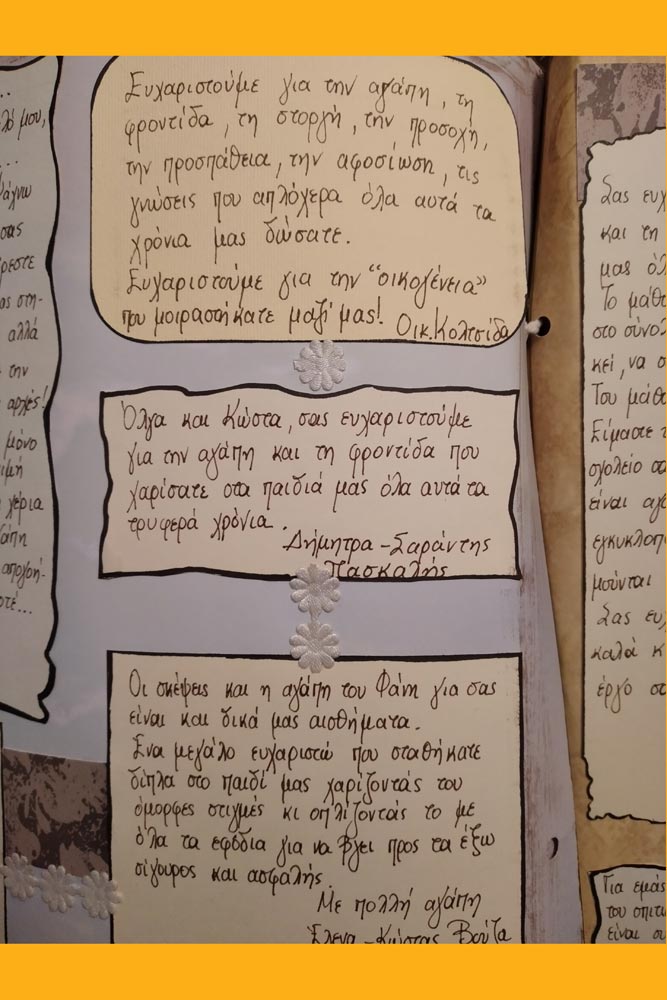 ...
λό μου,
...
ψάχνω
σας
ρεστε
ας στη-
αλλά
την
αρχές!
μόνο
ιμή
χέρια
άπη
απογοή-
οτέ...
Ευχαριστούμε για την αγάπη, τη
φροντίδα, τη στοργή, την προσοχή,
την προσπάθεια, την αφοσίωση, τις
γνώσεις που απλόχερα όλα αυτά τα
χρόνια μας δώσατε.
Ευχαριστούμε για την “οικογένεια”
που μοιραστήκατε μαζί μας!
Οικ. Κολτσίδα
Όλγα και Κώστα, σας ευχαριστούμε
για την αγάπη και τη φροντίδα που
χαρίσατε στα παιδιά μας όλα αυτά τα
τρυφερά χρόνια.
Δήμητρα - Σαράντης
Πασκαλής
Οι σκέψεις και η αγάπη του Φάνη για σας
είναι και δικά μας αισθήματα.
Ένα μεγάλο ευχαριστώ που σταθήκατε
δίπλα στο παιδί μας χαρίζοντάς του
όμορφες στιγμές κι οπλίζοντάς το με
όλα τα εφόδια για να βγει προς τα έξω
σίγουρος και ασφαλής.
Με πολλή αγάπη
Έλενα - Κώστας Βούζα
Σας ευχ
και τη
μας όλ
Το μάθη
στο σύνολ
κεί, να σ
Του μάθα
Είμαστε τ
σχολείο σα
είναι αγ
εγκυκλοπ
μούνται
Σας ευχ
καλά κ
έργο σα
Για εμάς
του σπιτι
είναι συ